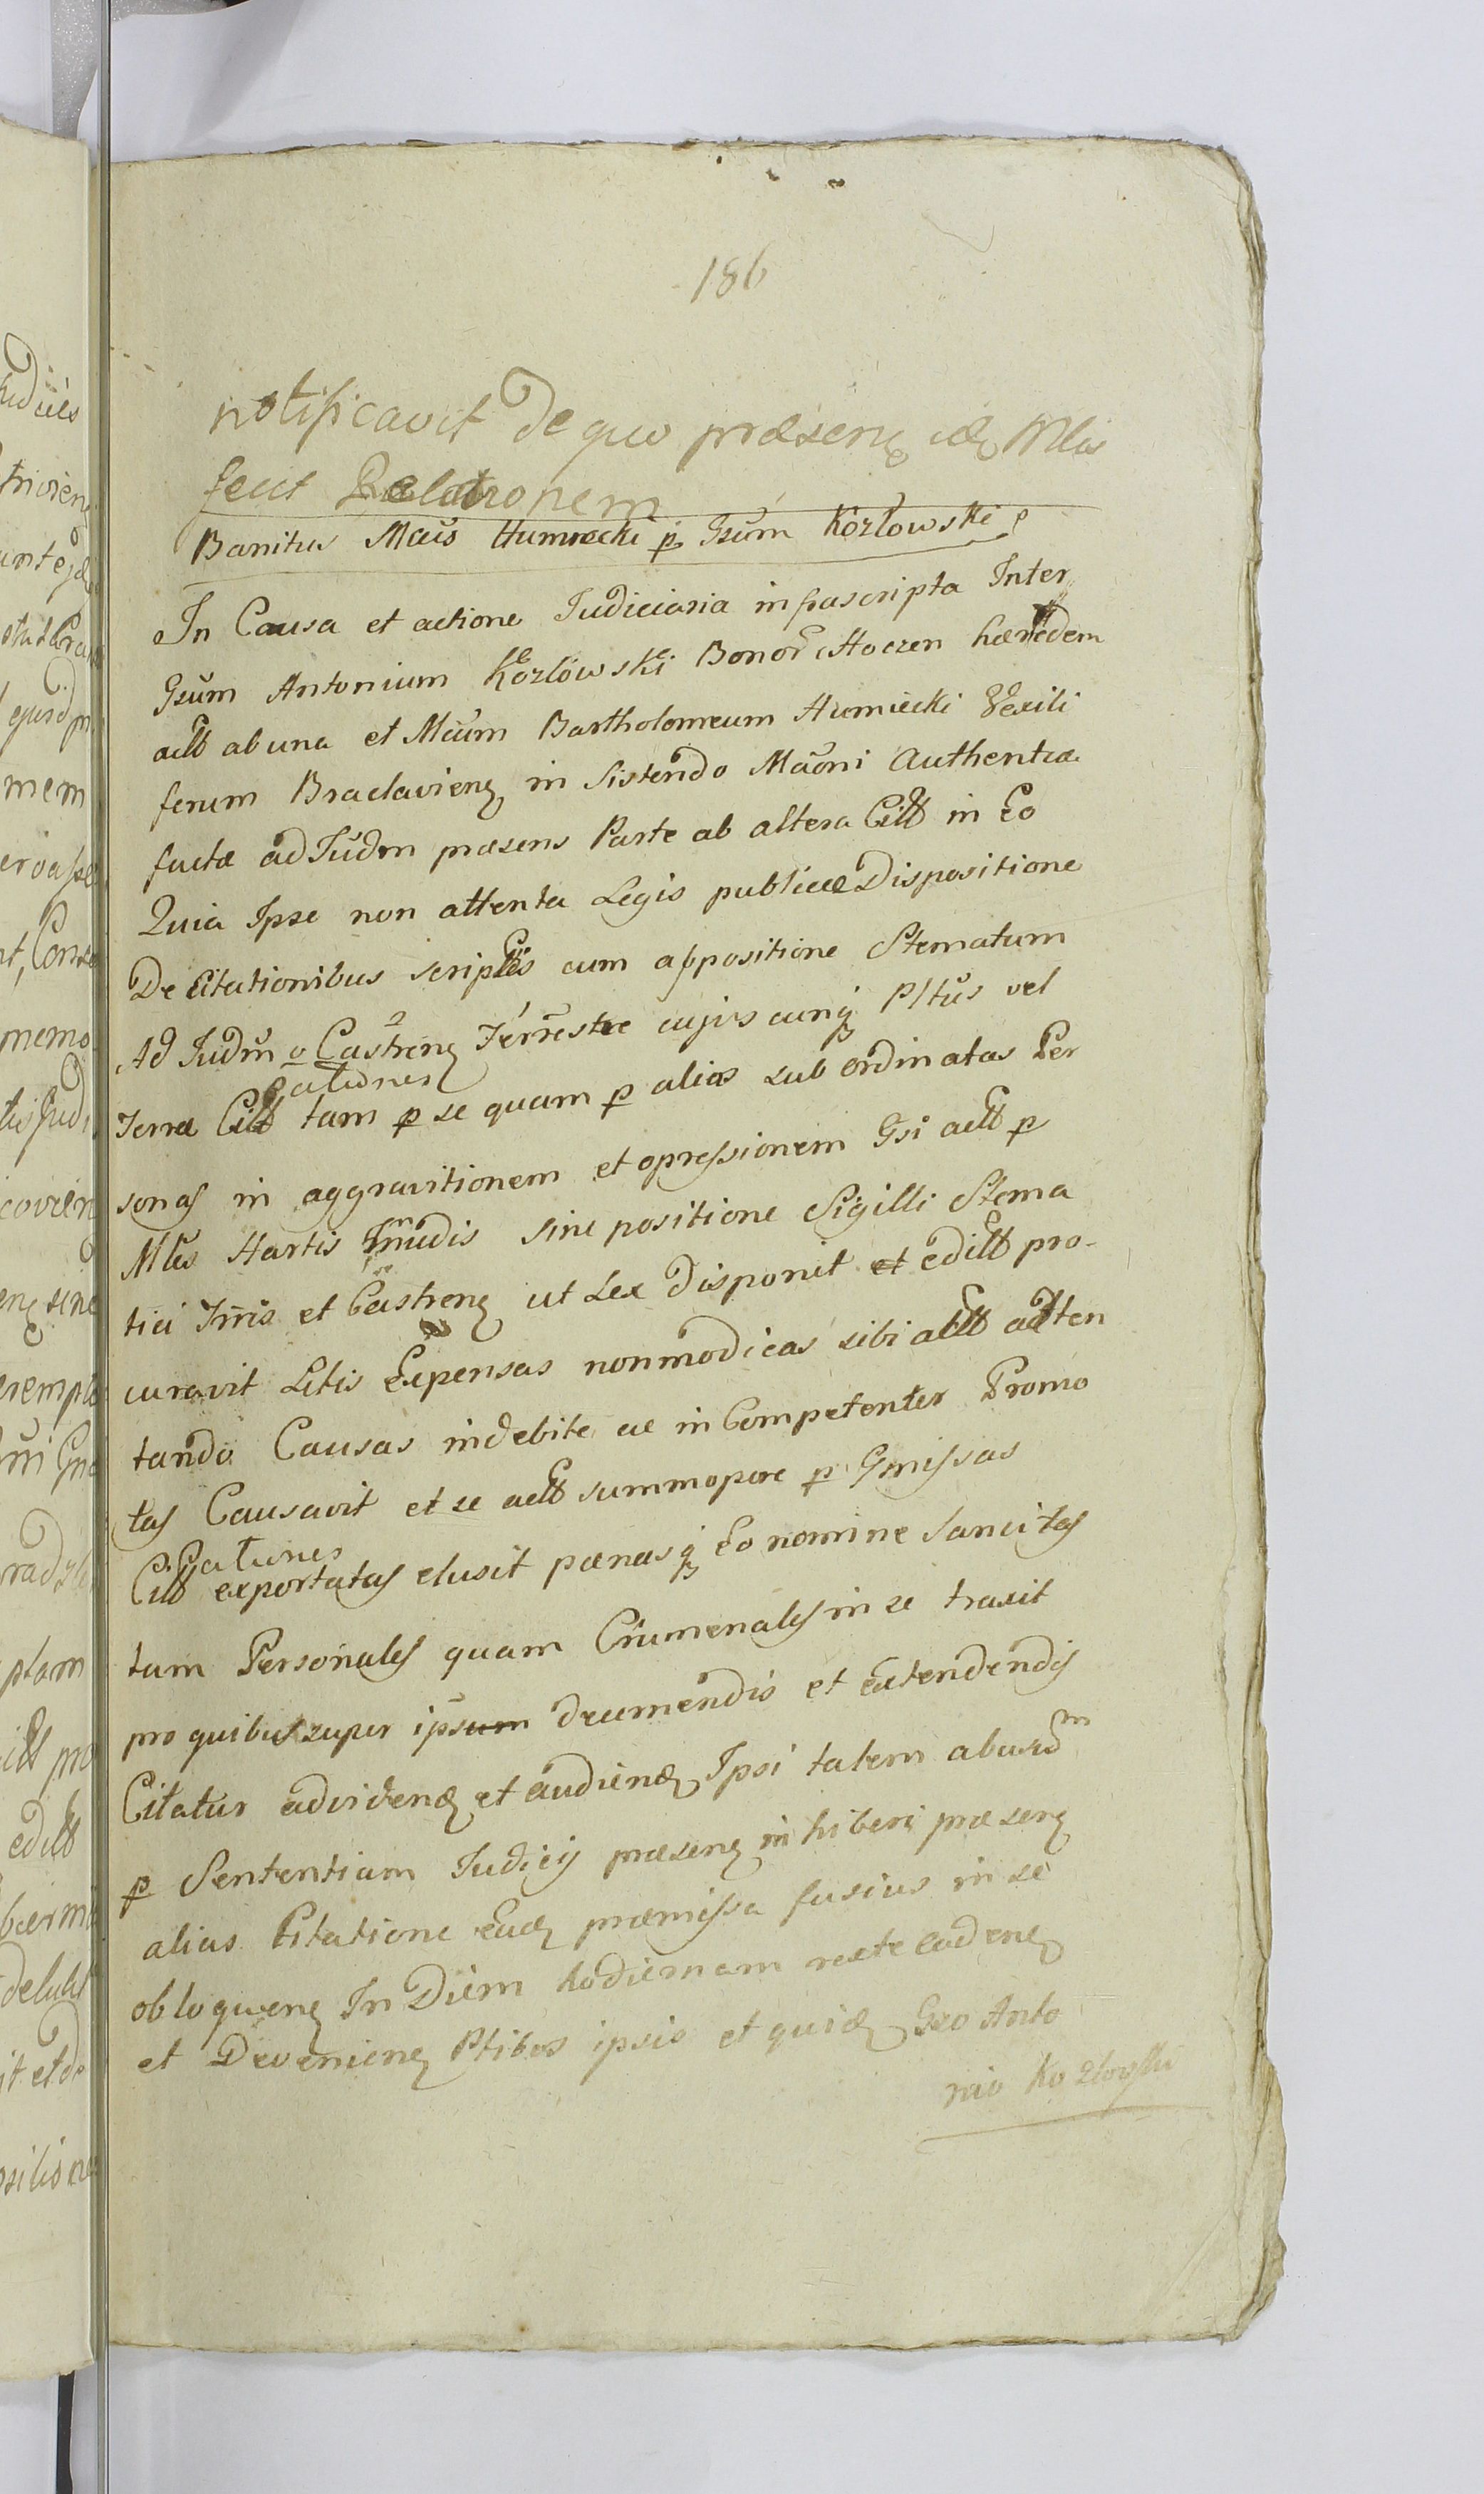 186
notificavit De quo præsenę idę Mlis
fecit Relationem
Banitus Mcus Humiecki p Gsum Kozłowski
In Causa et actione Judiciaria infrascripta Inter
Gsum Antonium Kozłowski Bonor Hoczen hæredem
actt ab una et Mcum Bartholomeum Humiecki Vexili
ferum Braclavienę in Sistendo Maoni Authentica
factæ ad Judm præsens Parte ab altera Citt in Eo
Quia Ipse non attenta Legis publicæ Dispositione
De Citationibus scriptis cum appositione Stematum
Ad Judm o Castrenę Terrestre cujus cunq Pltus vel
Terræ Citt Cationes tam p se quam p alias sub ordinatas Per
sonas in aggravitionem et opressionem Gsi actt p
Mles Hartis nudis sine positione Sigilli Stema
tici Trris et Castrenę ut Lex Disponit et editt pro-
curavit Litis Expensas non modicas sibi actt atten
tando Causas indebite ac in Competenter Promo
tas Causavit et se actt summopere p Gmissas
Citt Cationes exportatas elusit pænasq Eo nomine Sancitas
tam Personales quam Criumenales in se traxit
pro quibus super ipsum decernendis et extendendis
Citatur ad videnđ et audienđ Ipsi talem abusum
p Sententiam Judicij præsenę in hiberi præsenę
alias Citatione Eadę præmissa fusius in se
obloquenę In Diem hodiernam recte cadenę
et Devenienę Ptibus ipsis et quidę Gso Anto
nio Kozłowski